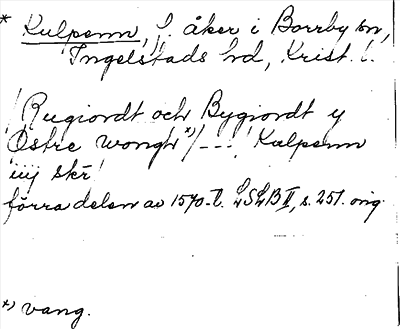 * Kulpenn, f. åker i Borrby sn,
Ingelstads hd, Krist. l.
/Rugiordt och Bygiordt y
Östre wongh *)/ --- Kulpenn
iiij skr!
förra delen av 1570-t. LSLB II, s. 251. orig.
*) vang.